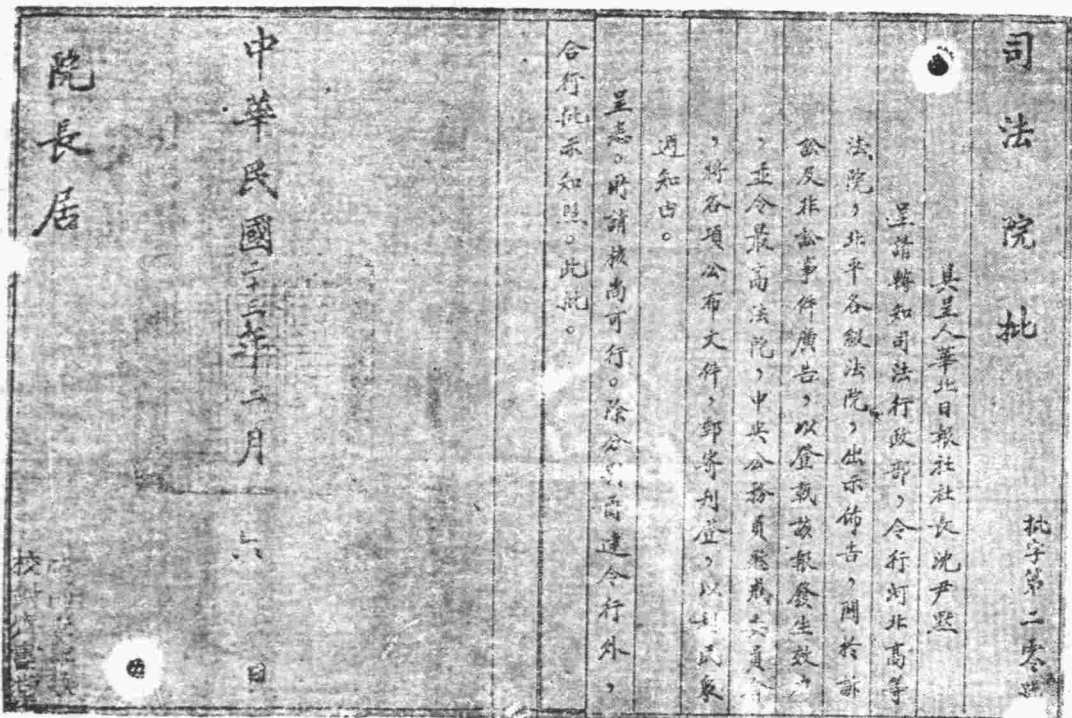 司法院批
批字第二零號
具呈人華北日報社社長沈尹默
呈請轉知司法行政部，令行河北高等
法院，北平各級法院，出示佈告，關於訴
訟及非訟事件廣告，以登載該報發生效力
，並令最高法院，中央公務員懲戒委員會
，將各項公布文件，郵寄刊登，以利民衆
週知由。
呈悉。所請核尚可行。除分別函達令行外，
合行批示知照。此批。
中華民國二十三年二月六日
院長居
校對